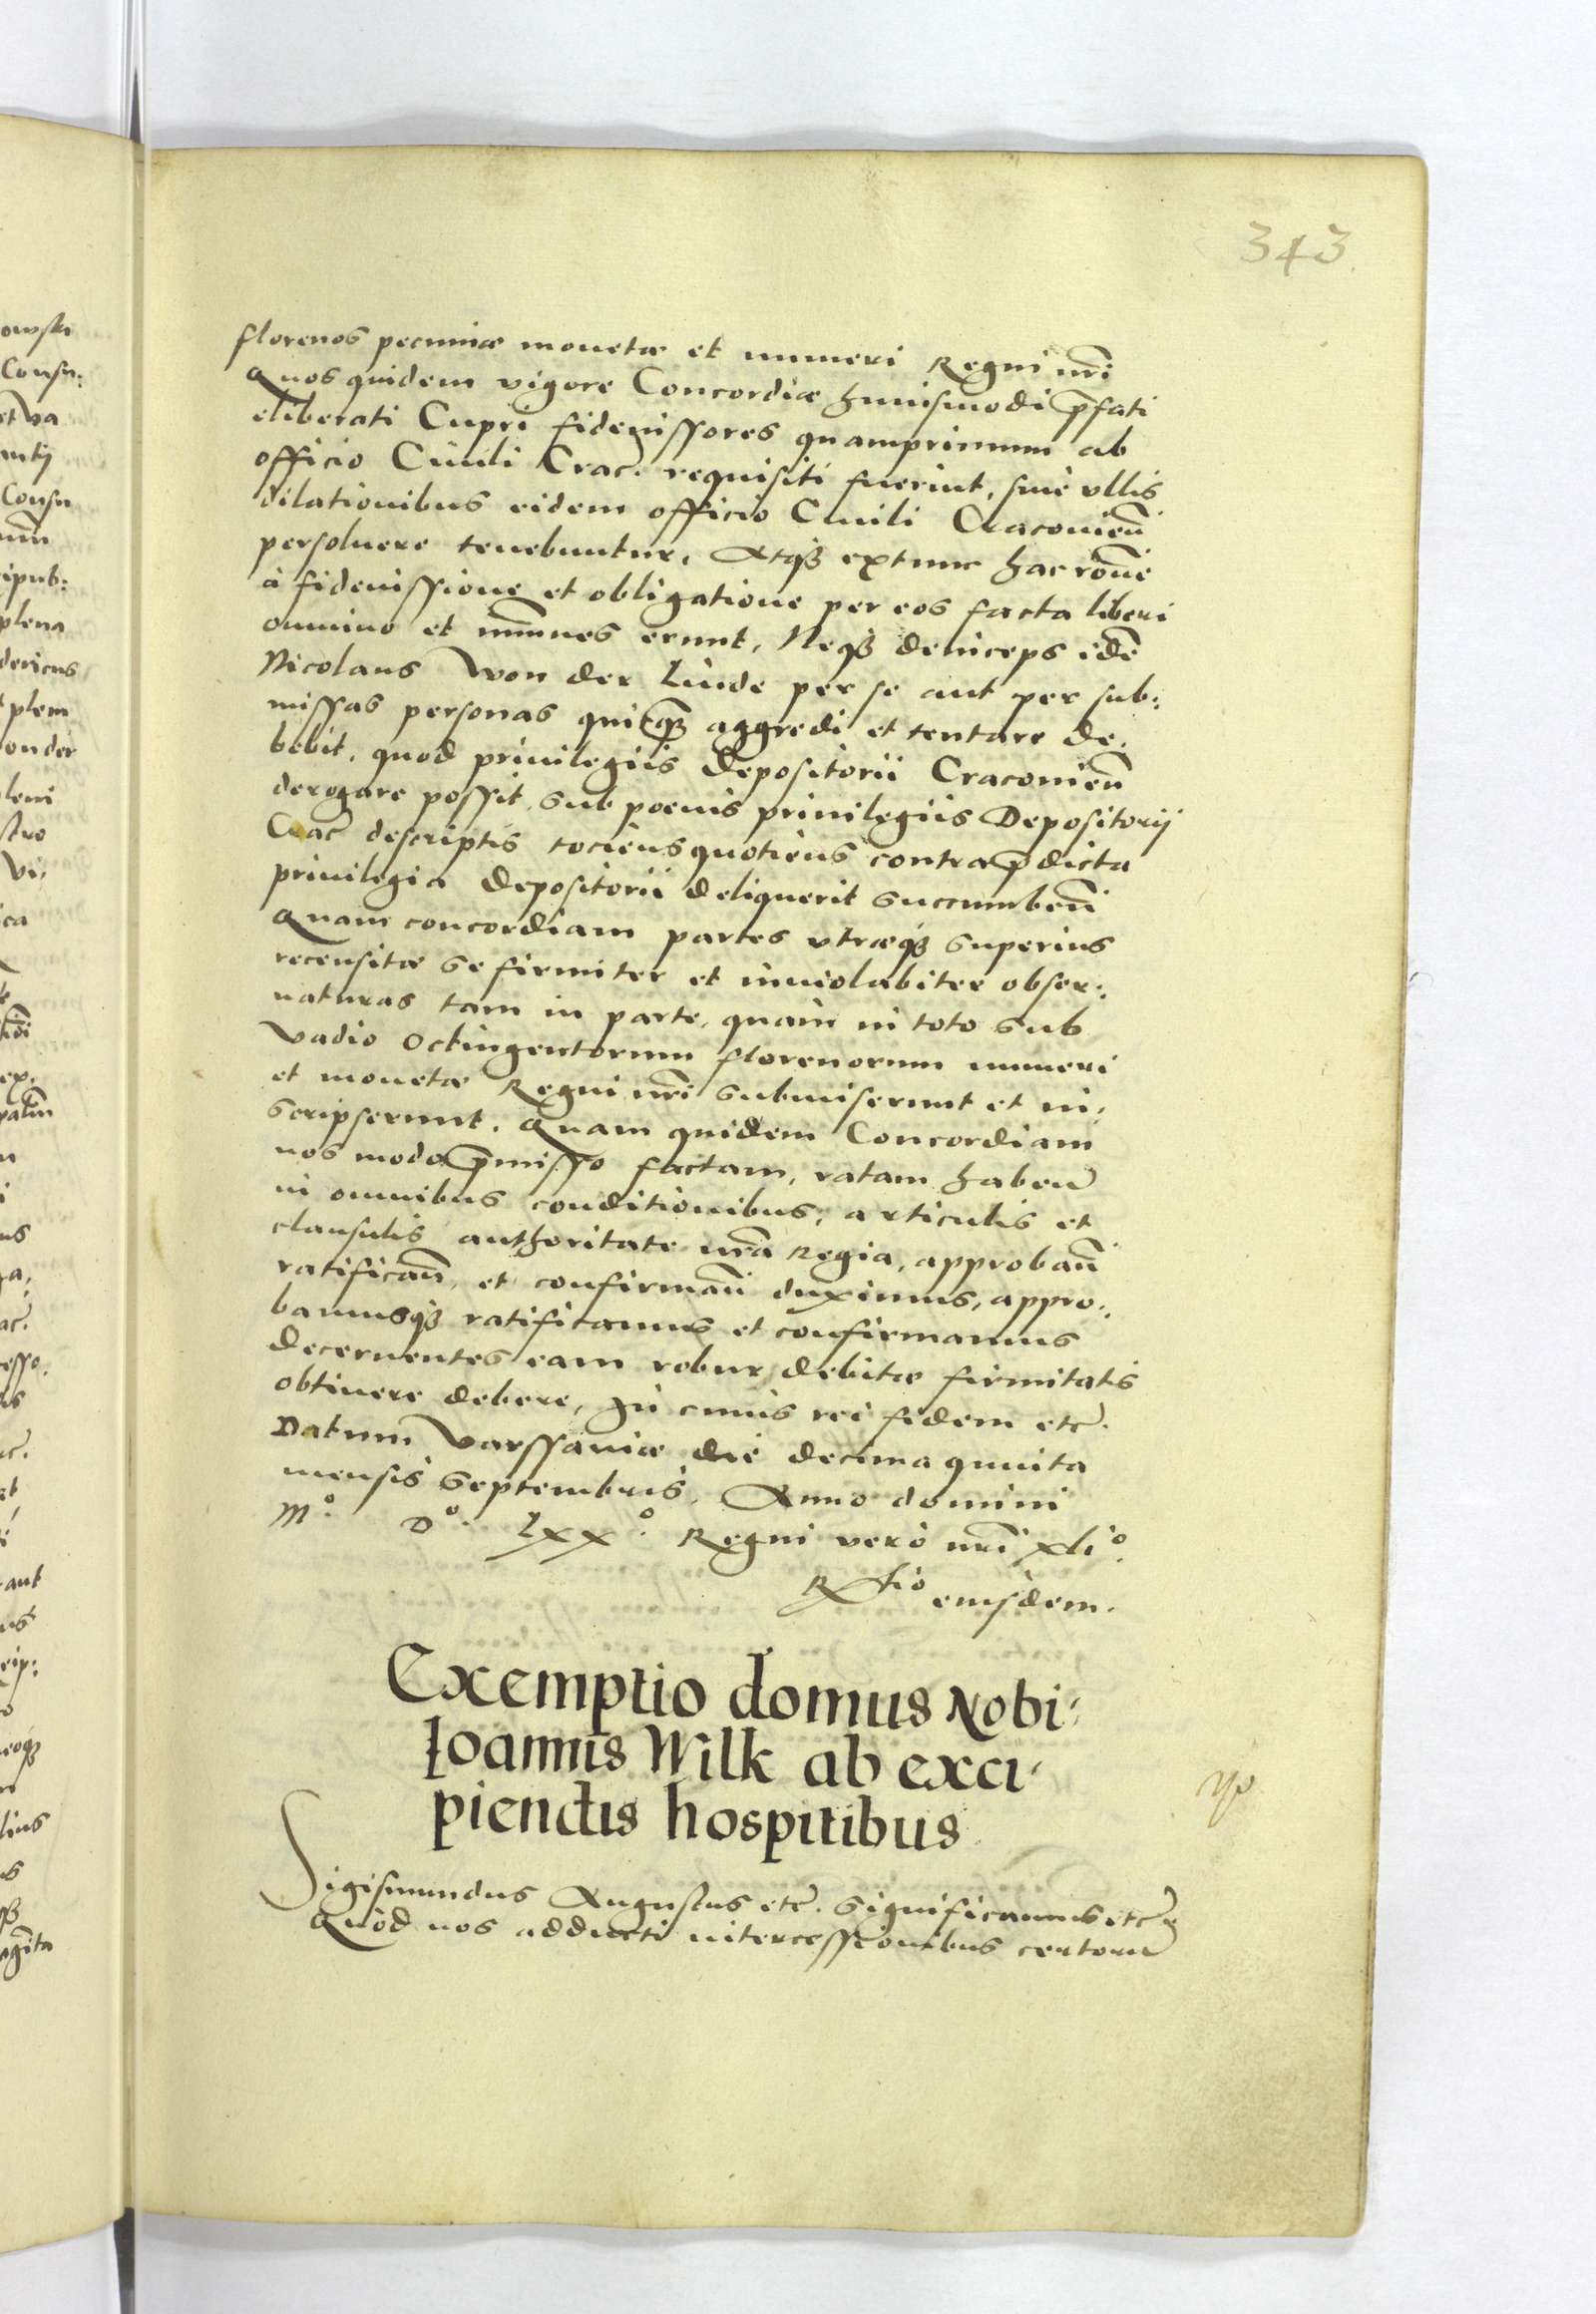 343
florenos pecuniæ monetæ et numeri Regni nr̃i
Quos quidem vigore Concordiæ huiusmodi p̃fati
eliberati Cupri fideiussores quamprimum ab
officio Ciuili Crac̃. requisiti fuerint, sine vllis
dilationibus eidem officio Ciuili Cracouieñ
persoluere tenebuntur, Atq₃ extunc hac rõne
à fideiussione et obligatione per eos facta liberi
omnino et im̃unes erunt, Neq₃ deinceps idẽ
Nicolaus Von der Linde per se aut per sub:
missas personas quicq̃₃ aggredi et tentare de:
bebit, quod priuilegiis Depositorii Cracouieñ
derogare possit, sub poenis priuilegiis Depositorij
Crac̃ descriptis tociens quotiens contra p̃dicta
priuilegia Depositorii deliquerit succumbeñ
Quam concordiam partes vtræq₃ superius
recensitæ se firmiter et inuiolabiter obser:
uaturas tam in parte, quam in toto sub
vadio Octingentorum florenorum numeri
et monetæ Regni nr̃i submiserunt et in:
scripserunt. Quam quidem Concordiam
nos modo p̃misso factam, ratam habeñ
in omnibus conditionibus, articulis et
clausulis authoritate nr̃a Regia, approbañ
ratificañ, et confirmañ duximus, appro:
bamusq₃ ratificamus et confirmamus
decernentes eam robur debitæ firmitatis
obtinere debere, In cuius rei fidem etc̃.
Datum Varssauiæ die decima quinta
mensis Septembris, Anno domini
M.º D.º Lxx.º Regni vero nr̃i xli.º
R̃tio eiusdem.
Exemptio domus Nobi:
Ioannis Wilk ab exci:
piendis hospitibus
Sigismundus Augustus etc̃. Significamus etc̃
Quod nos adducti intercessionibus certorũ